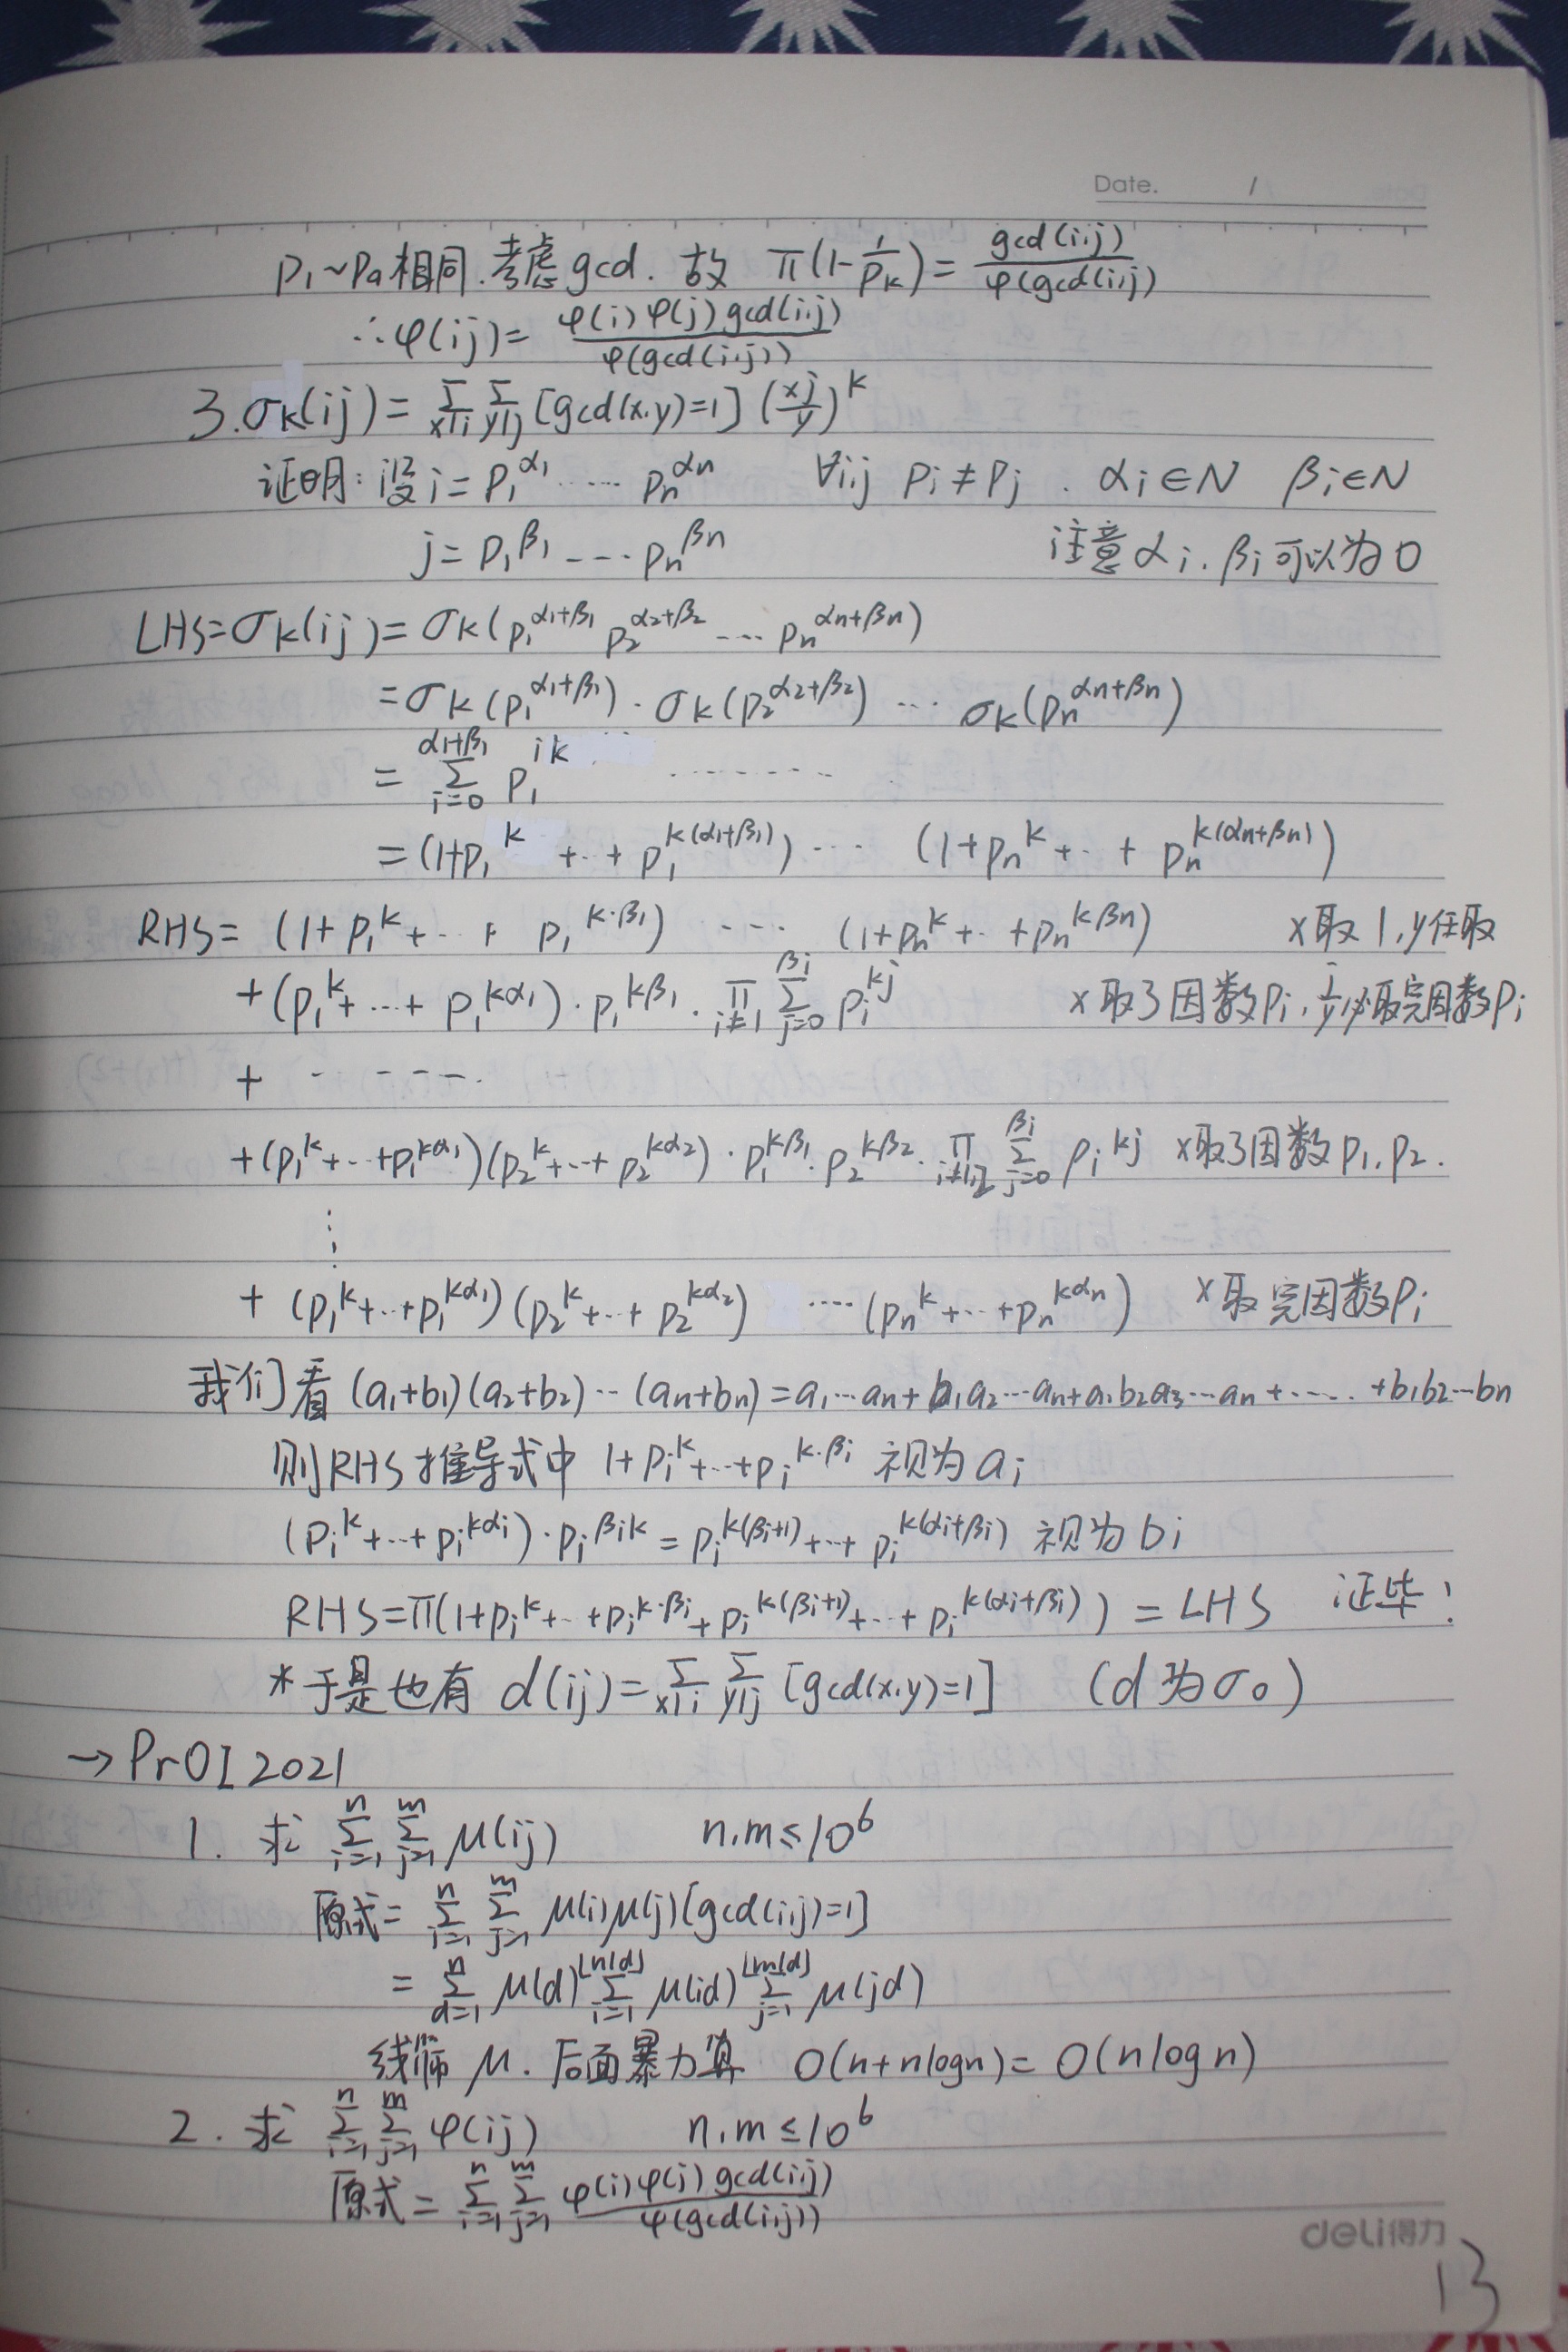 Date. /
p₁~pₐ相同. 考虑gcd. 故 π(1-1/pₖ) = gcd(i,j)/φ(gcd(i,j))
∴ φ(ij) = φ(i)φ(j)gcd(i,j)/φ(gcd(i,j))
3. σₖ(ij) = Σ_{x|i} Σ_{y|j} [gcd(x,y)=1] (xj/y)^k
证明: 设 i = p₁^{α₁} ····· pₙ^{αₙ} ∀i,j pᵢ ≠ pⱼ . αᵢ∈N βᵢ∈N
j = p₁^{β₁} ---- pₙ^{βₙ} 注意 αᵢ. βᵢ可以为0
LHS = σₖ(ij) = σₖ(p₁^{α₁+β₁} p₂^{α₂+β₂} ···· pₙ^{αₙ+βₙ})
= σₖ(p₁^{α₁+β₁}) · σₖ(p₂^{α₂+β₂}) ··· σₖ(pₙ^{αₙ+βₙ})
= Σ_{i=0}^{α₁+β₁} p₁^{ik} ········
= (1+p₁^k +··+ p₁^{k(α₁+β₁)}) ··· (1+pₙ^k +··+ pₙ^{k(αₙ+βₙ)})
RHS = (1+p₁^k +··+ p₁^{k·β₁}) ··· (1+pₙ^k +··+pₙ^{kβₙ}) x取1,y任取
+ (p₁^k +···+ p₁^{kα₁}) · p₁^{kβ₁} · Π_{i≠1} Σ_{j=0}^{βᵢ} pᵢ^{kj} x取了因数p₁,
+ - - - - - - ·
+ (p₁^k +··+p₁^{kα₁})(p₂^k +··+ p₂^{kα₂}) · p₁^{kβ₁} · p₂^{kβ₂} · Π_{i≠1,2} Σ_{j=0}^{βᵢ} pᵢ^{kj} x取了因数p₁,p₂.
⋮
+ (p₁^k +··+p₁^{kα₁})(p₂^k +··+ p₂^{kα₂}) ···· (pₙ^k +··+pₙ^{kαₙ}) x取完因数pᵢ
我们看 (a₁+b₁)(a₂+b₂)··(aₙ+bₙ) = a₁···aₙ+b₁a₂···aₙ+a₁b₂a₃···aₙ+···· +b₁b₂···bₙ
则RHS推导式中 1+pᵢ^k +··+pᵢ^{k·βᵢ} 视为aᵢ
(pᵢ^k +··+ pᵢ^{kαᵢ}) · pᵢ^{βᵢk} = pᵢ^{k(βᵢ+1)} +··+ pᵢ^{k(αᵢ+βᵢ)} 视为bᵢ
RHS = π(1+pᵢ^k +··+pᵢ^{k·βᵢ} + pᵢ^{k(βᵢ+1)} +··+ pᵢ^{k(αᵢ+βᵢ)}) = LHS 证毕!
* 于是也有 d(ij) = Σ_{x|i} Σ_{y|j} [gcd(x,y)=1] (d为σ₀)
→ PrOI 2021
1. 求 Σ_{i=1}^{n} Σ_{j=1}^{m} μ(ij) n,m≤10⁶
原式 = Σ_{i=1}^{n} Σ_{j=1}^{m} μ(i)μ(j)[gcd(i,j)=1]
= Σ_{d=1}^{n} μ(d) Σ_{i=1}^{⌊n/d⌋} μ(id) Σ_{j=1}^{⌊m/d⌋} μ(jd)
线筛 μ. 后面暴力算 O(n+nlogn) = O(nlogn)
2. 求 Σ_{i=1}^{n} Σ_{j=1}^{m} φ(ij) n,m≤10⁶
原式 = Σ_{i=1}^{n} Σ_{j=1}^{m} φ(i)φ(j)gcd(i,j)/φ(gcd(i,j))
deli得力
13